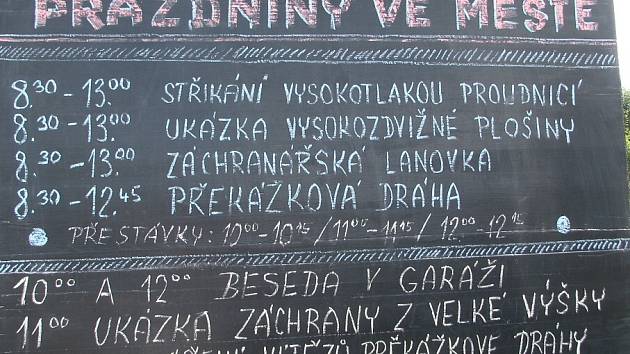 PRÁZDNINY VE MĚSTĚ
8.30 - 13.00 STŘÍKÁNÍ VYSOKOTLAKOU PROUDNICÍ
8.30 - 13.00 UKÁZKA VYSOKOZDVIŽNÉ PLOŠINY
8.30 - 13.00 ZÁCHRANÁŘSKÁ LANOVKA
8.30 - 12.45 PŘEKÁŽKOVÁ DRÁHA
PŘESTÁVKY: 10.00 - 10.15 / 11.00 - 11.15 / 12.00 - 12.15
10.00 A 12.00 BESEDA V GARÁŽI
11.00 UKÁZKA ZÁCHRANY Z VELKÉ VÝŠKY
VÍTĚZŮ PŘEKÁŽKOVÉ DRÁHY